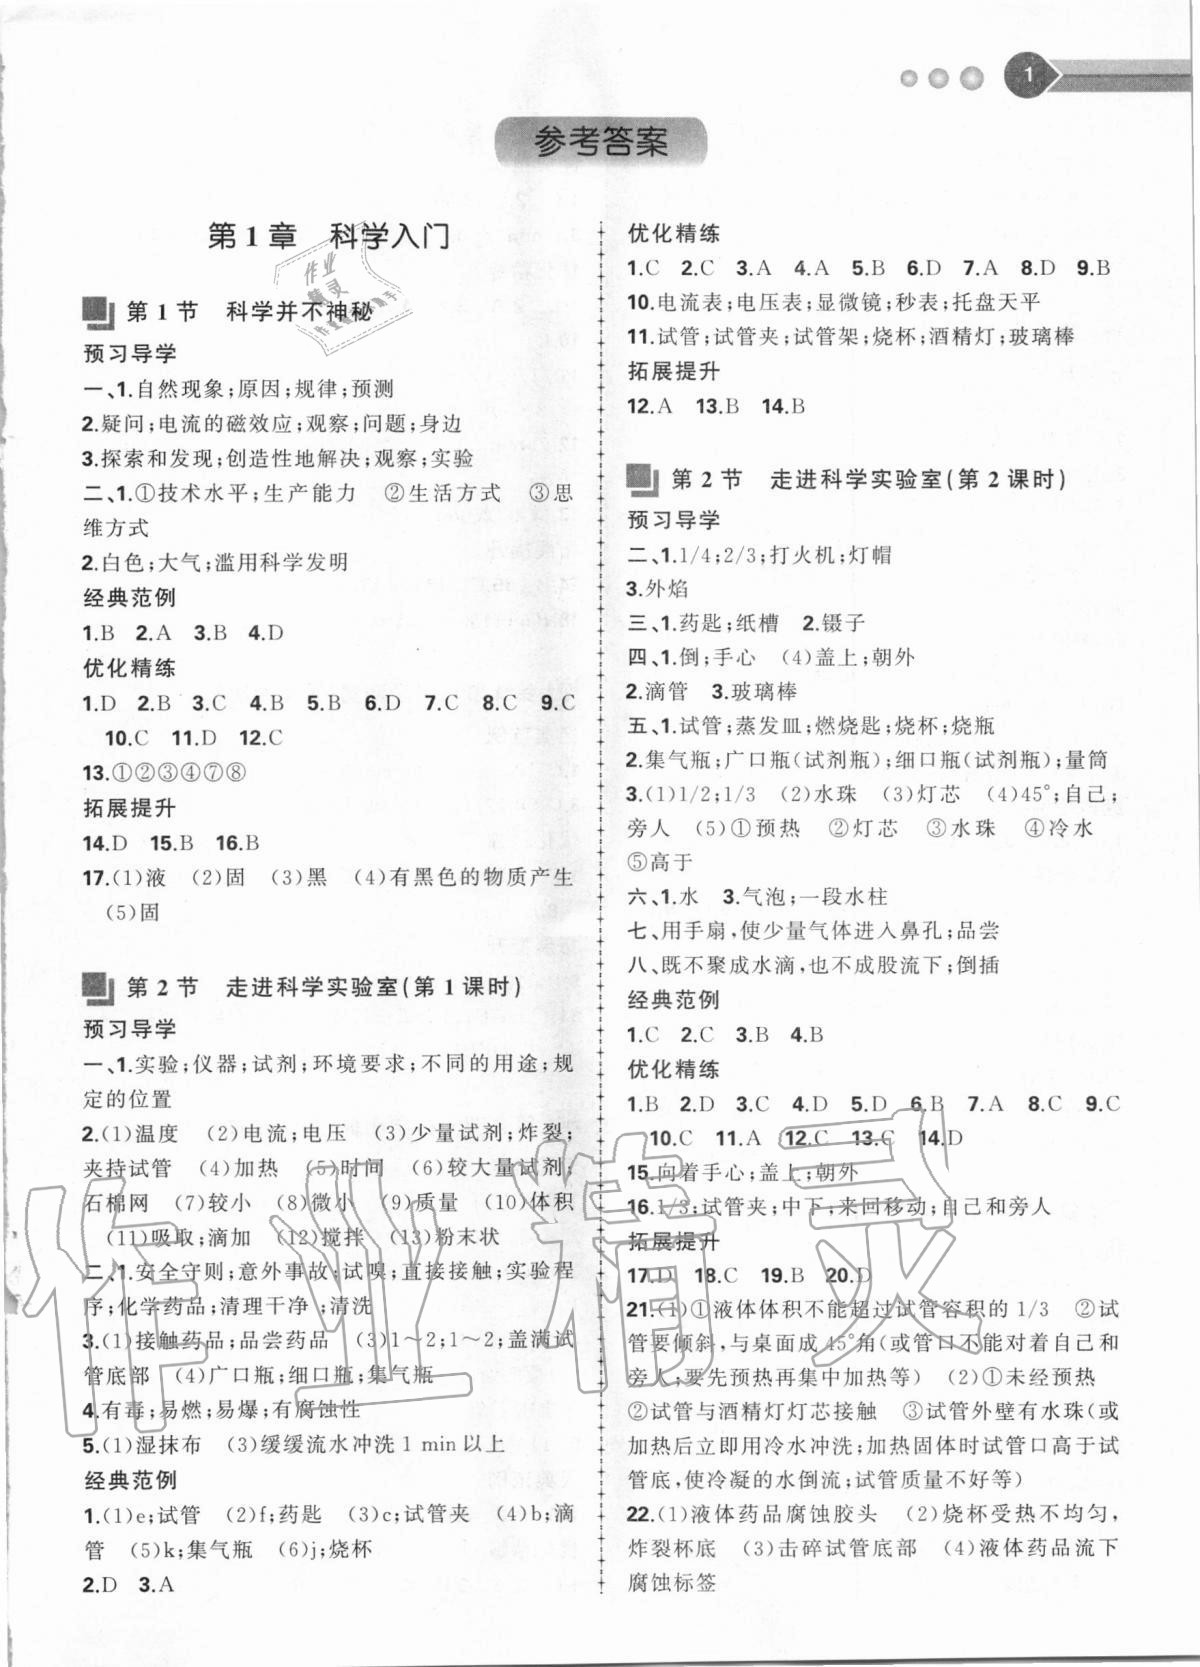 1
参考答案
第1章 科学入门
第1节 科学并不神秘
预习导学
一、1.自然现象;原因;规律;预测
2.疑问;电流的磁效应;观察;问题;身边
3.探索和发现;创造性地解决;观察;实验
二、1.①技术水平;生产能力 ②生活方式 ③思
维方式
2.白色;大气;滥用科学发明
经典范例
1.B 2.A 3.B 4.D
优化精练
1.D 2.B 3.C 4.B 5.B 6.D 7.C 8.C 9.C
10.C 11.D 12.C
13.①②③④⑦⑧
拓展提升
14.D 15.B 16.B
17.(1)液 (2)固 (3)黑 (4)有黑色的物质产生
(5)固
第2节 走进科学实验室(第1课时)
预习导学
一、1.实验;仪器;试剂;环境要求;不同的用途;规
定的位置
2.(1)温度 (2)电流;电压 (3)少量试剂;炸裂;
夹持试管 (4)加热 (5)时间 (6)较大量试剂;
石棉网 (7)较小 (8)微小 (9)质量 (10)体积
(11)吸取;滴加 (12)搅拌 (13)粉末状
二、1.安全守则;意外事故;试嗅;直接接触;实验程
序;化学药品;清理干净;清洗
3.(1)接触药品;品尝药品 (3)1～2;1～2;盖满试
管底部 (4)广口瓶;细口瓶;集气瓶
4.有毒;易燃;易爆;有腐蚀性
5.(1)湿抹布 (3)缓缓流水冲洗1 min以上
经典范例
1.(1)e;试管 (2)f;药匙 (3)c;试管夹 (4)b;滴
管 (5)k;集气瓶 (6)j;烧杯
2.D 3.A
优化精练
1.C 2.C 3.A 4.A 5.B 6.D 7.A 8.D 9.B
10.电流表;电压表;显微镜;秒表;托盘天平
11.试管;试管夹;试管架;烧杯;酒精灯;玻璃棒
拓展提升
12.A 13.B 14.B
第2节 走进科学实验室(第2课时)
预习导学
二、1.1/4;2/3;打火机;灯帽
3.外焰
三、1.药匙;纸槽 2.镊子
四、1.倒;手心 (4)盖上;朝外
2.滴管 3.玻璃棒
五、1.试管;蒸发皿;燃烧匙;烧杯;烧瓶
2.集气瓶;广口瓶(试剂瓶);细口瓶(试剂瓶);量筒
3.(1)1/2;1/3 (2)水珠 (3)灯芯 (4)45°;自己;
旁人 (5)①预热 ②灯芯 ③水珠 ④冷水
⑤高于
六、1.水 3.气泡;一段水柱
七、用手扇,使少量气体进入鼻孔;品尝
八、既不聚成水滴,也不成股流下;倒插
经典范例
1.C 2.C 3.B 4.B
优化精练
1.B 2.D 3.C 4.D 5.D 6.B 7.A 8.C 9.C
10.C 11.A 12.C 13.C 14.D
15.向着手心;盖上;朝外
16.1/3;试管夹;中下;来回移动;自己和旁人
拓展提升
17.D 18.C 19.B 20.D
21.(1)①液体体积不能超过试管容积的1/3 ②试
管要倾斜,与桌面成45°角(或管口不能对着自己和
旁人;要先预热再集中加热等) (2)①未经预热
②试管与酒精灯灯芯接触 ③试管外壁有水珠(或
加热后立即用冷水冲洗;加热固体时试管口高于试
管底,使冷凝的水倒流;试管质量不好等)
22.(1)液体药品腐蚀胶头 (2)烧杯受热不均匀,
炸裂杯底 (3)击碎试管底部 (4)液体药品流下
腐蚀标签
作业精灵